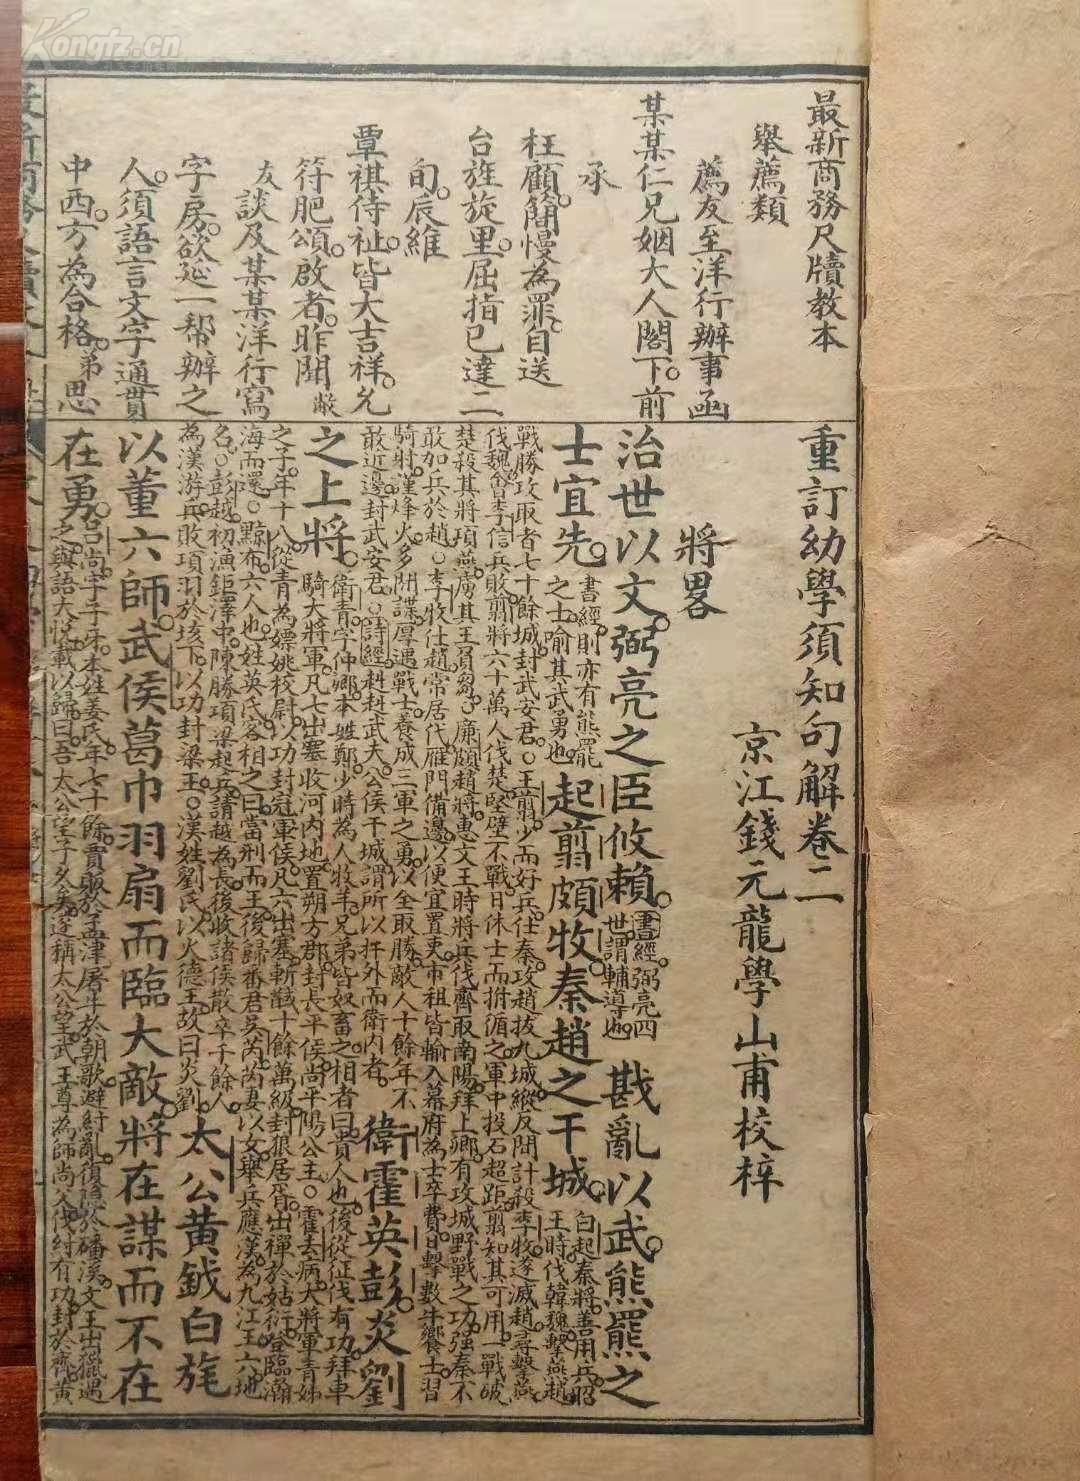 最新商務尺牘教本
舉薦類
薦友至洋行辦事函
某某仁兄姻大人閣下。前
承
枉顧。簡慢為罪。自送
台旌旋里。屈指已達二
旬。辰維
覃祺侍祉。皆大吉祥。允
符肥頌。啟者。昨聞敝
友談及某某洋行寫
字房。欲延一帮辦之
人。須語言文字通貫
中西。方為合格。弟思
重訂幼學須知句解卷二
京江錢元龍學山甫校梓
將畧
治世以文。弼亮之臣攸賴。書經。弼亮四世。謂輔導也。戡亂以武。熊羆之
士宜先。書經。則亦有熊羆之士。喻其武勇也。起翦頗牧。秦趙之干城。白起。秦將。善用兵。昭王時。伐韓魏。擊燕趙。
戰勝攻取者七十餘城。封武安君。○王翦。少而好兵。仕秦。攻趙。拔九城。縱反間計。殺李牧。遂滅趙。尋擊燕。
伐魏。會李信兵敗。翦將六十萬人伐楚。堅壁不戰。日休士而拊循之。軍中投石超距。翦知其可用。一戰破
楚。殺其將項燕。虜其王負芻。○廉頗。趙將。惠文王時。將兵伐齊。取南陽。拜上卿。有攻城野戰之功。強秦不
敢加兵於趙。○李牧。仕趙。常居代雁門備邊。以便宜置吏。市租皆輸入幕府。為士卒費。日擊數牛饗士。習
騎射。謹烽火。多閒諜。厚遇戰士。養成三軍之勇。以全取勝。敵人十餘年不
敢近邊。封武安君。○詩經。赳赳武夫。公侯干城。謂所以扞外而衛內者。衛霍英彭。炎劉
之上將。衛青。字仲卿。本姓鄭。少時為人牧羊。兄弟皆奴畜之。相者曰。貴人也。後從征伐有功。拜車騎大將軍。凡七出塞。收河內地。置朔方郡。封長平侯。尚平陽公主。○霍去病。大將軍青姊
之子。年十八。從青為嫖姚校尉。以功封冠軍侯。凡六出塞。斬馘十餘萬級。封狼居胥。出禪於姑衍。登臨瀚
海而還。○黥布。六人也。姓英氏。客相之曰。當刑而王。後歸番君吳芮。芮妻以女。舉兵應漢。為九江王。六。地
名。○彭越。初漁鉅澤中。陳勝項梁起兵。請越為長。後收諸侯散卒千餘人。
為漢游兵。敗項羽於垓下。以功封梁王。○漢姓劉氏。以火德王。故曰炎劉。太公黃鉞白旄
以董六師。武侯葛巾羽扇而臨大敵。將在謀而不在
在勇。呂尚。字子牙。本姓姜氏。年七十餘。賣販於孟津。屠牛於朝歌。避紂亂。復隱於磻溪。文王出獵。遇
之。與語大悅。載以歸。曰。吾太公望子久矣。遂稱太公望。武王尊為師尚父。伐紂有功。封於齊。黃